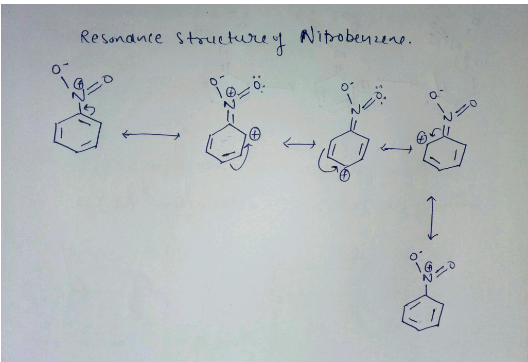 Resonance structure of Nitrobenzene.
O⁻ ⊕ N O
O⁻ ⊕ N O: ⊕
O⁻ N O: ⊕
O⁻ N O ⊕
O⁻ ⊕ N O